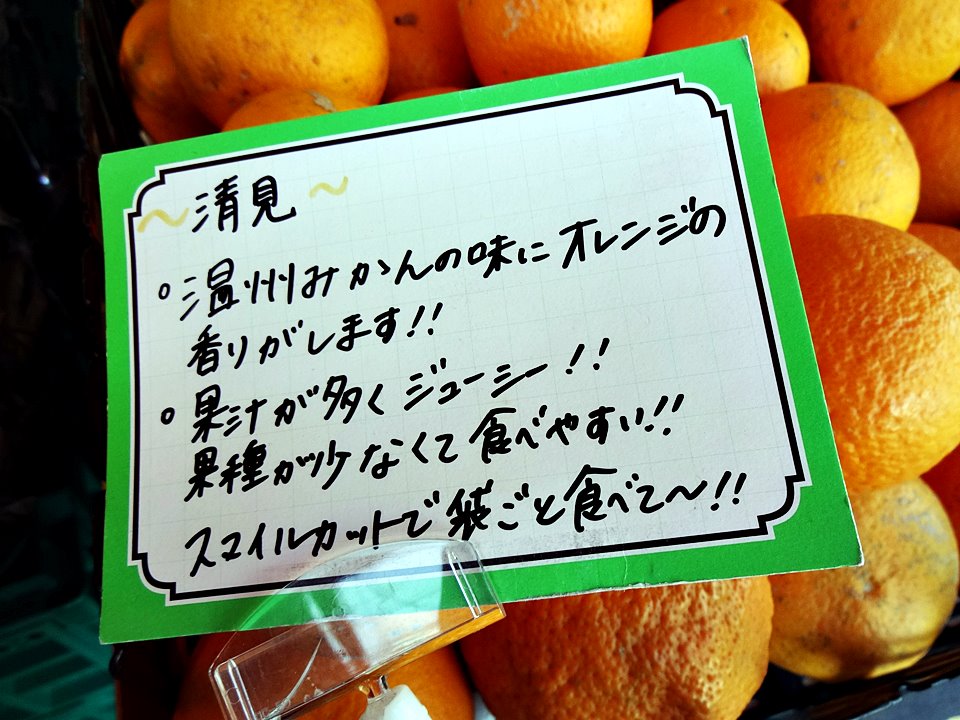 ~清見~
°温州みかんの味にオレンジの
香りがします!!
°果汁が多くジューシー!!
果種が少なくて食べやすい!!
スマイルカットで袋ごと食べて~!!